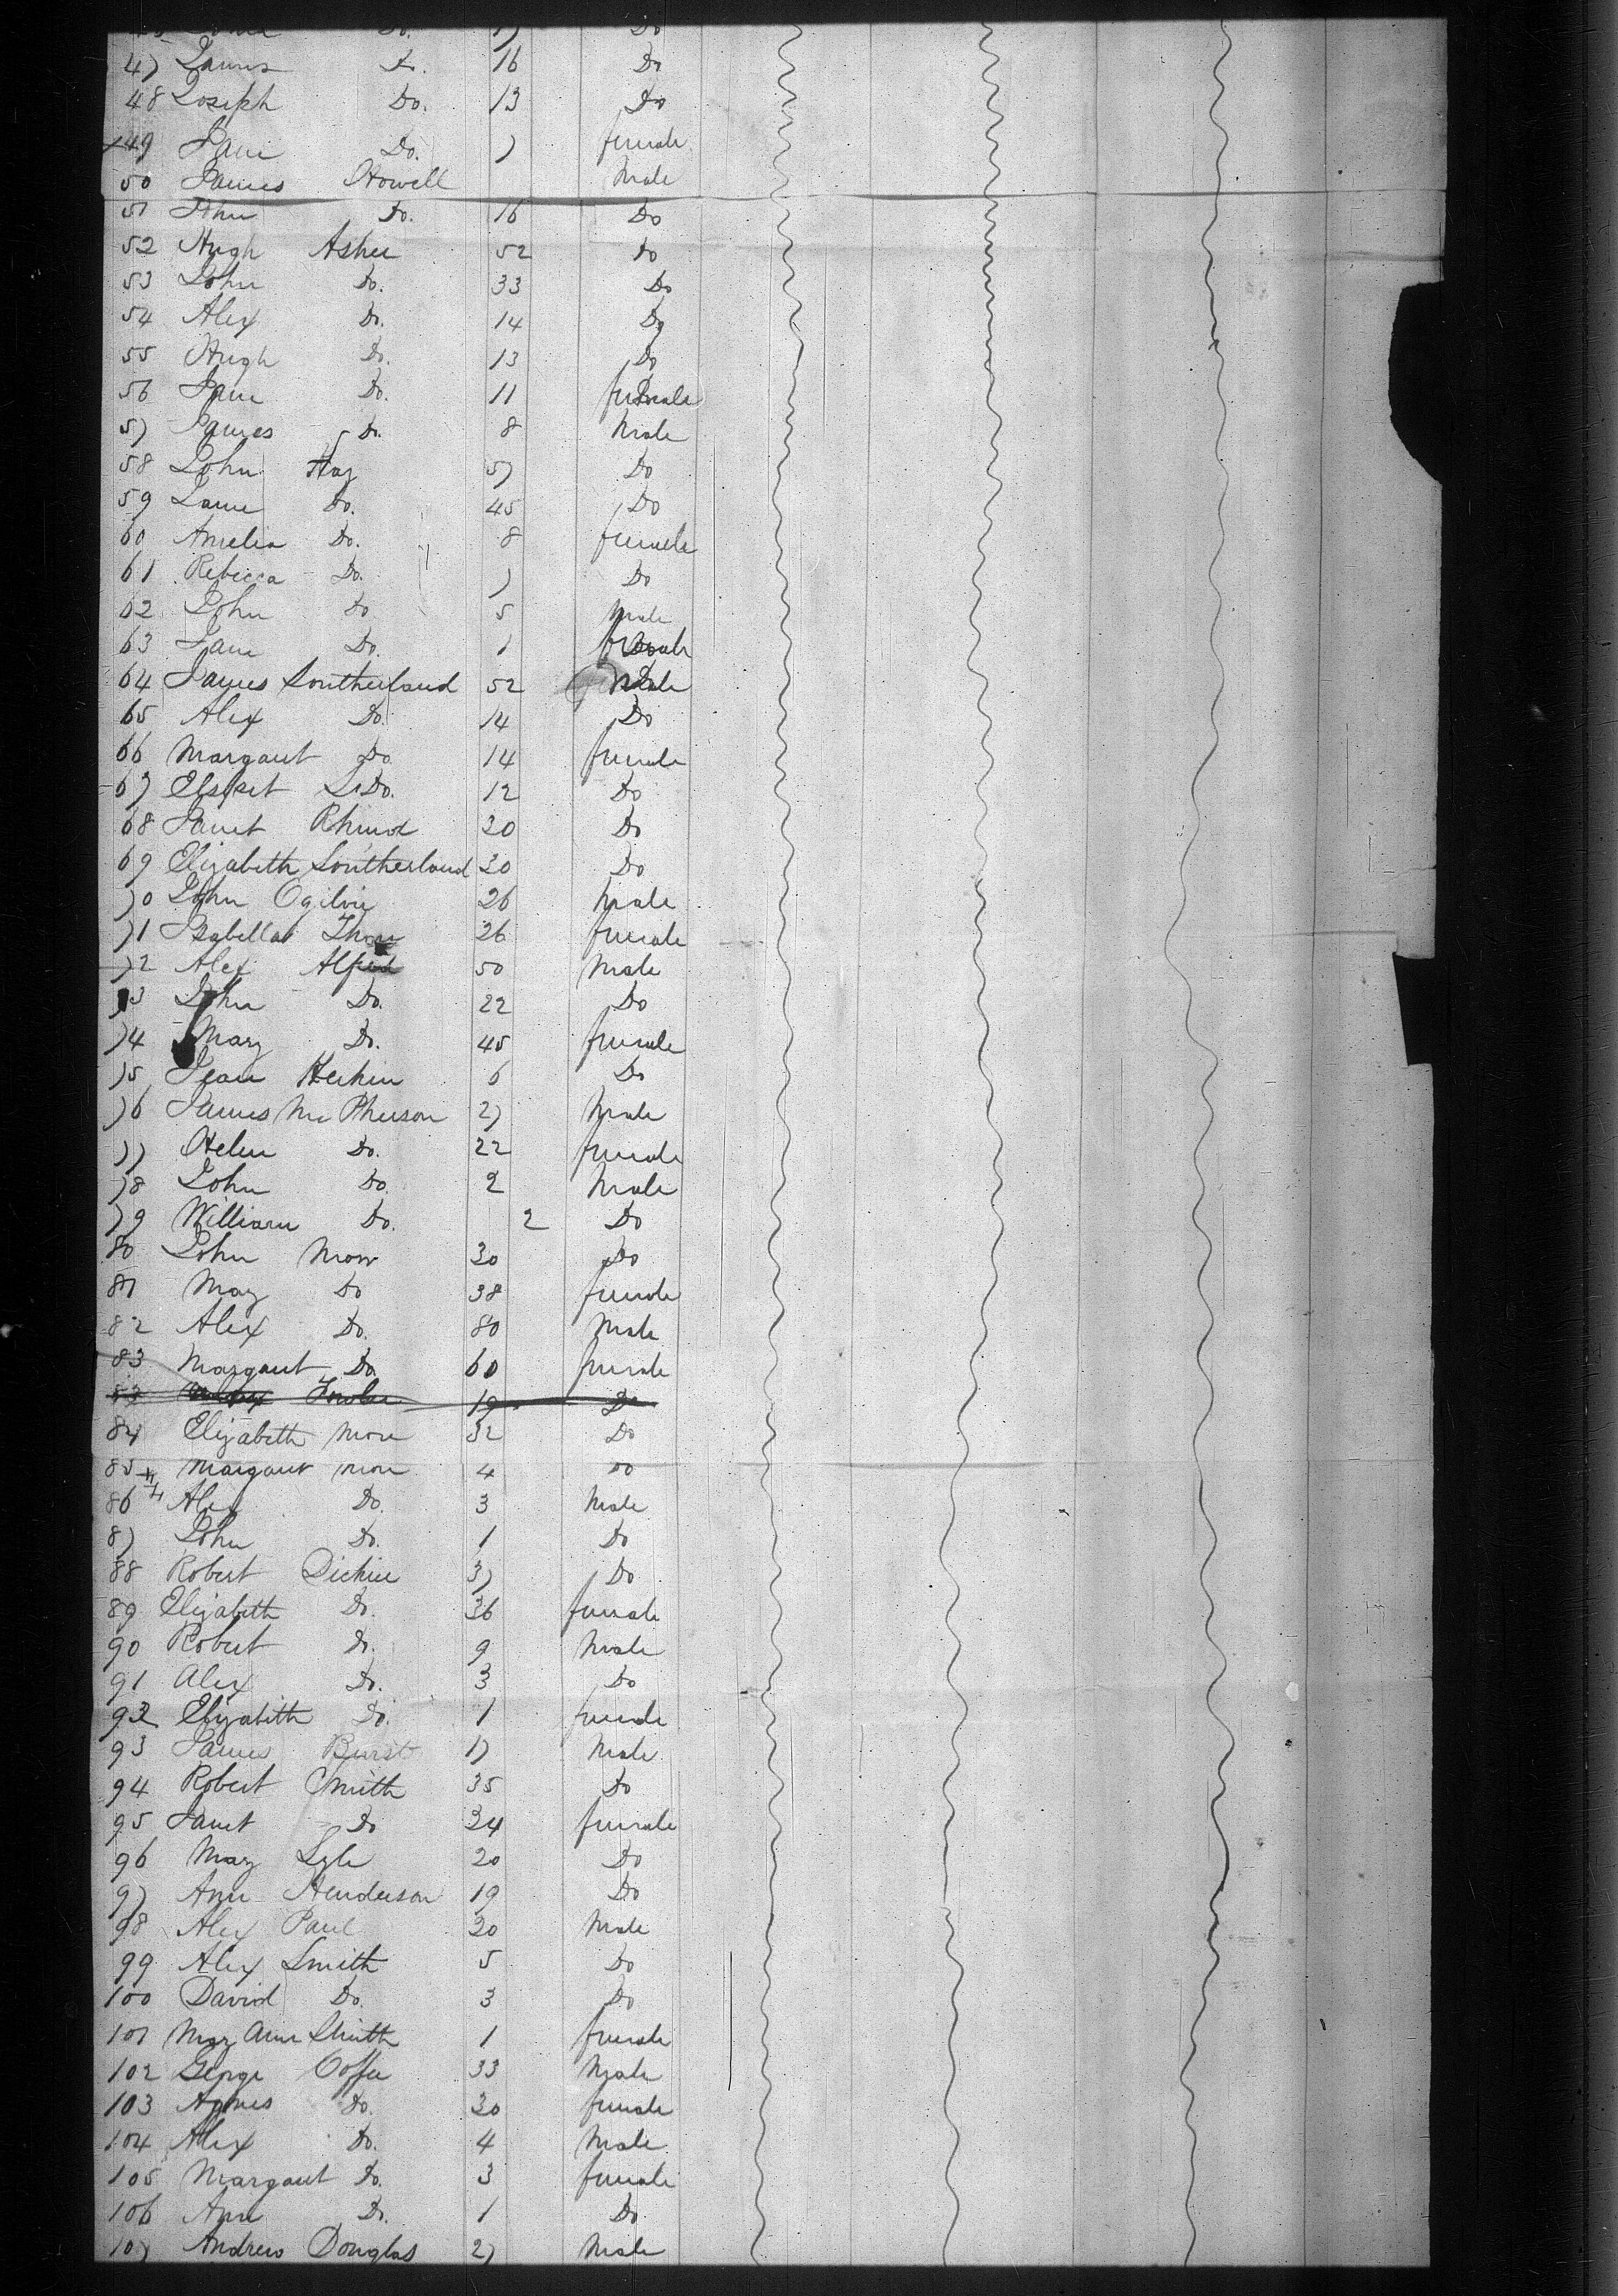 Do. 17 Do
47 James Do. 16 Do
48 Joseph Do. 13 Do
49 Jane Do. 7 female
50 James Howell Male
51 John Do. 16 Do
52 Hugh Asher 52 Do
53 John Do. 33 Do
54 Alex Do. 14 Do
55 Hugh Do. 13 Do
56 Jane Do. 11 female
57 James Do. 8 Male
58 John Hay 57 Do
59 Jane Do. 45 Do
60 Amelia Do. 8 female
61 Rebecca Do. 7 Do
62 John Do 5 Male
63 Jane Do. 1 female
64 James Southerland 52 Male
65 Alex Do. 14 Do
66 Margaret Do. 14 female
67 Elspet Do. 12 Do
68 Janet Rhind 30 Do
69 Elizabeth Southerland 30 Do
70 John Ogilvie 26 Male
71 Isabella 26 female
72 Alex 50 Male
73 John Do. 22 Do
74 Mary Do. 45 female
75 Jean 6 Do
76 James McPherson 27 Male
77 Helen Do. 22 female
78 John Do. 2 Male
79 William Do. 2 Do
80 John Morr 30 Do
81 Mary Do 38 female
82 Alex Do. 80 Male
83 Margaret Do. 60 female
83 Fowler 19 Do
84 Elizabeth More 32 Do
85 Margaret More 4 Do
86 Alex Do. 3 Male
87 John Do. 1 Do
88 Robert Dickie 37 Do
89 Elizabeth Do. 36 female
90 Robert Do. 9 Male
91 Alex Do. 3 Do
92 Elizabeth Do. 1 female
93 James 17 Male
94 Robert Smith 35 Do
95 Janet Do 34 female
96 Mary Lyle 20 Do
97 Ann Henderson 19 Do
98 Alex Paul 30 Male
99 Alex Smith 5 Do
100 David Do. 3 Do
101 Mary Ann Smith 1 female
102 George Coffee 33 Male
103 Agnes Do. 30 female
104 Alex Do. 4 Male
105 Margaret Do. 3 female
106 Ann Do. 1 Do
107 Andrew Douglas 27 Male